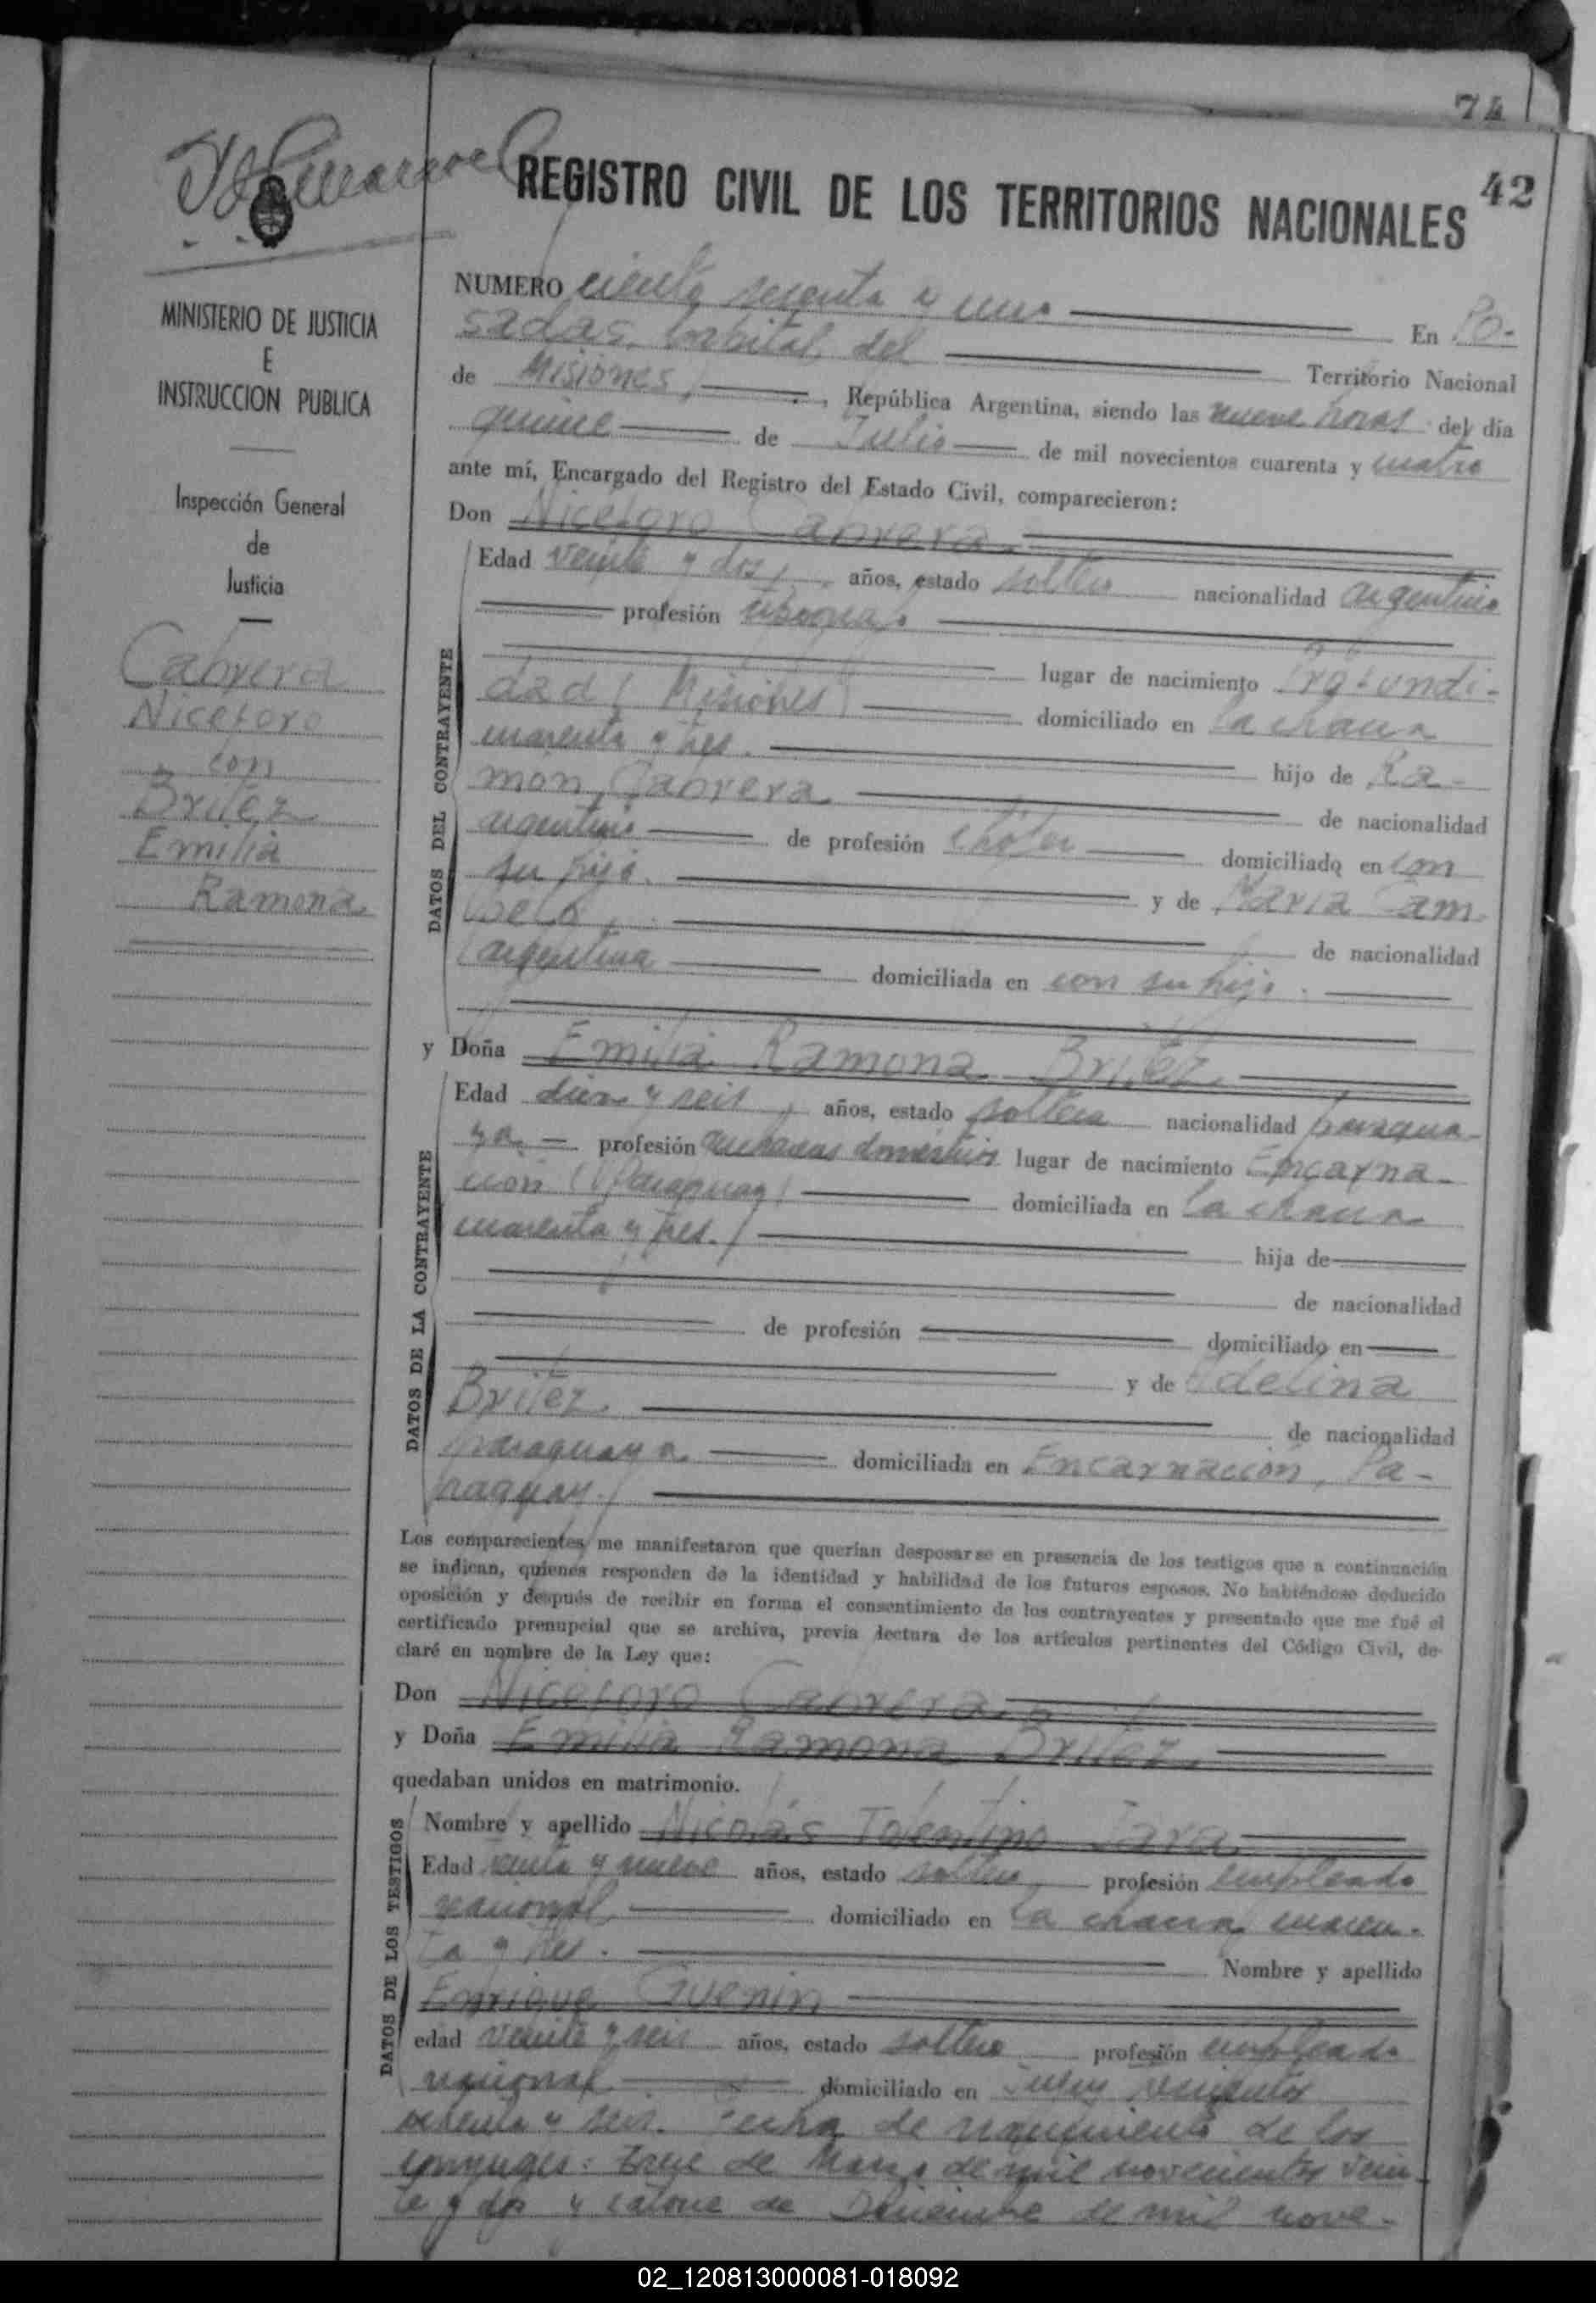 74
42
REGISTRO CIVIL DE LOS TERRITORIOS NACIONALES
MINISTERIO DE JUSTICIA
E
INSTRUCCION PUBLICA
Inspección General
de
Justicia
Cabrera
Niceforo
con
Britez
Emilia
Ramona
NUMERO ciento sesenta y uno En Po-
sadas, Capital del Territorio Nacional
de Misiones, República Argentina, siendo las nueve horas del día
quince de Julio de mil novecientos cuarenta y cuatro
ante mí, Encargado del Registro del Estado Civil, comparecieron:
Don Niceforo Cabrera
Edad veinte y dos, años, estado soltero nacionalidad argentino
profesión
lugar de nacimiento Profundi-
dad (Misiones) domiciliado en la chacra
cuarenta y tres. hijo de Ra-
món Cabrera de nacionalidad
argentino de profesión chofer domiciliado en con
su hijo. y de María Cam
de nacionalidad
argentina domiciliada en con su hijo.
DATOS DEL CONTRAYENTE
y Doña Emilia Ramona Britez
Edad diez y seis, años, estado soltera nacionalidad paragua-
ya. profesión quehaceres domésticos lugar de nacimiento Encarna-
ción (Paraguay) domiciliada en la chacra
cuarenta y tres. hija de
de nacionalidad
de profesión domiciliado en
y de Adelina
Britez. de nacionalidad
paraguaya domiciliada en Encarnación, Pa-
raguay.
DATOS DE LA CONTRAYENTE
Los comparecientes me manifestaron que querían desposarse en presencia de los testigos que a continuación
se indican, quienes responden de la identidad y habilidad de los futuros esposos. No habiéndose deducido
oposición y después de recibir en forma el consentimiento de los contrayentes y presentado que me fué el
certificado prenupcial que se archiva, previa lectura de los artículos pertinentes del Código Civil, de-
claré en nombre de la Ley que:
Don Niceforo Cabrera
y Doña Emilia Ramona Britez
quedaban unidos en matrimonio.
Nombre y apellido Nicolás Tolentino Jara
Edad y nueve años, estado soltero, profesión empleado
nacional domiciliado en la chacra cuaren-
ta y tres. Nombre y apellido
Enrique Guenin
edad veinte y seis años, estado soltero profesión empleado
nacional domiciliado en
ochenta y seis. Fecha de nacimiento de los
conyuges: trece de Marzo de mil novecientos vein-
te y dos y catorce de Diciembre de mil nove-
DATOS DE LOS TESTIGOS
02_120813000081-018092